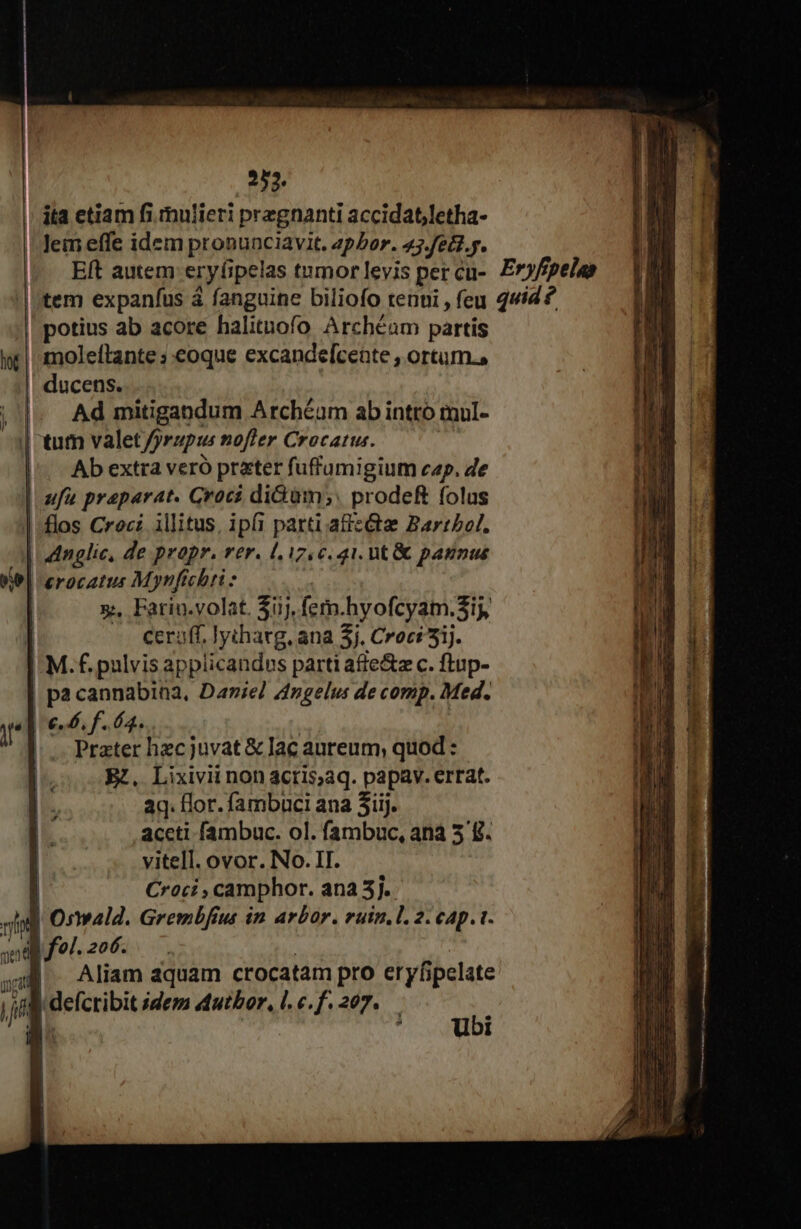 253.
ita etiam ſi mulieri prægnanti accidat, letha-
lem eſſe idem pronunciavit. aphor. 43. ſect. 5.
Eſt autem eryſipelas tumor levis per cu- Eryſipelas
tem expanſus á ſanguine bilioſo tenui, ſeu quid?
potius ab acore halituoſo Archéum partis
moleſtante; eoque excandeſcente, ortum
ducens.
Ad mitigandum Archéum ab intro mul-
tum valet ſyrupus noſter Crocatus.
Ab extra verò præter ſuffumigium cap. de
uſu præparat. Croci dictum, prodeſt ſolus
flos Croci illitus ipſi parti affectæ Barthol.
Anglic. de propr. rer. l. 17. c. 41. ut & pannus
crocatus Mynſichti:
℞. Farin. volat. ℥iij. ſem. hyoſcyam. ℥ij.
ceruſſ. lytharg. ana ℥j. Croci ʒij.
M. f. pulvis applicandus parti affectæ c. ſtup-
pa cannabina, Daniel Angelus de comp. Med.
c. 6. f. 64.
Præter hæc juvat & lac aureum, quod:
℞. Lixivii non acris, aq. papav. errat.
aq. flor. ſambuci ana ℥iij.
aceti ſambuc. ol. ſambuc, ana ℥ ß.
vitell. ovor. No. II.
Croci, camphor. ana ʒj.
Oswald. Grembſius in arbor. ruin. l. 2. cap. 1.
fol. 206.
Aliam aquam crocatam pro eryſipelate
deſcribit idem Author, l. c. f. 207.
Ubi